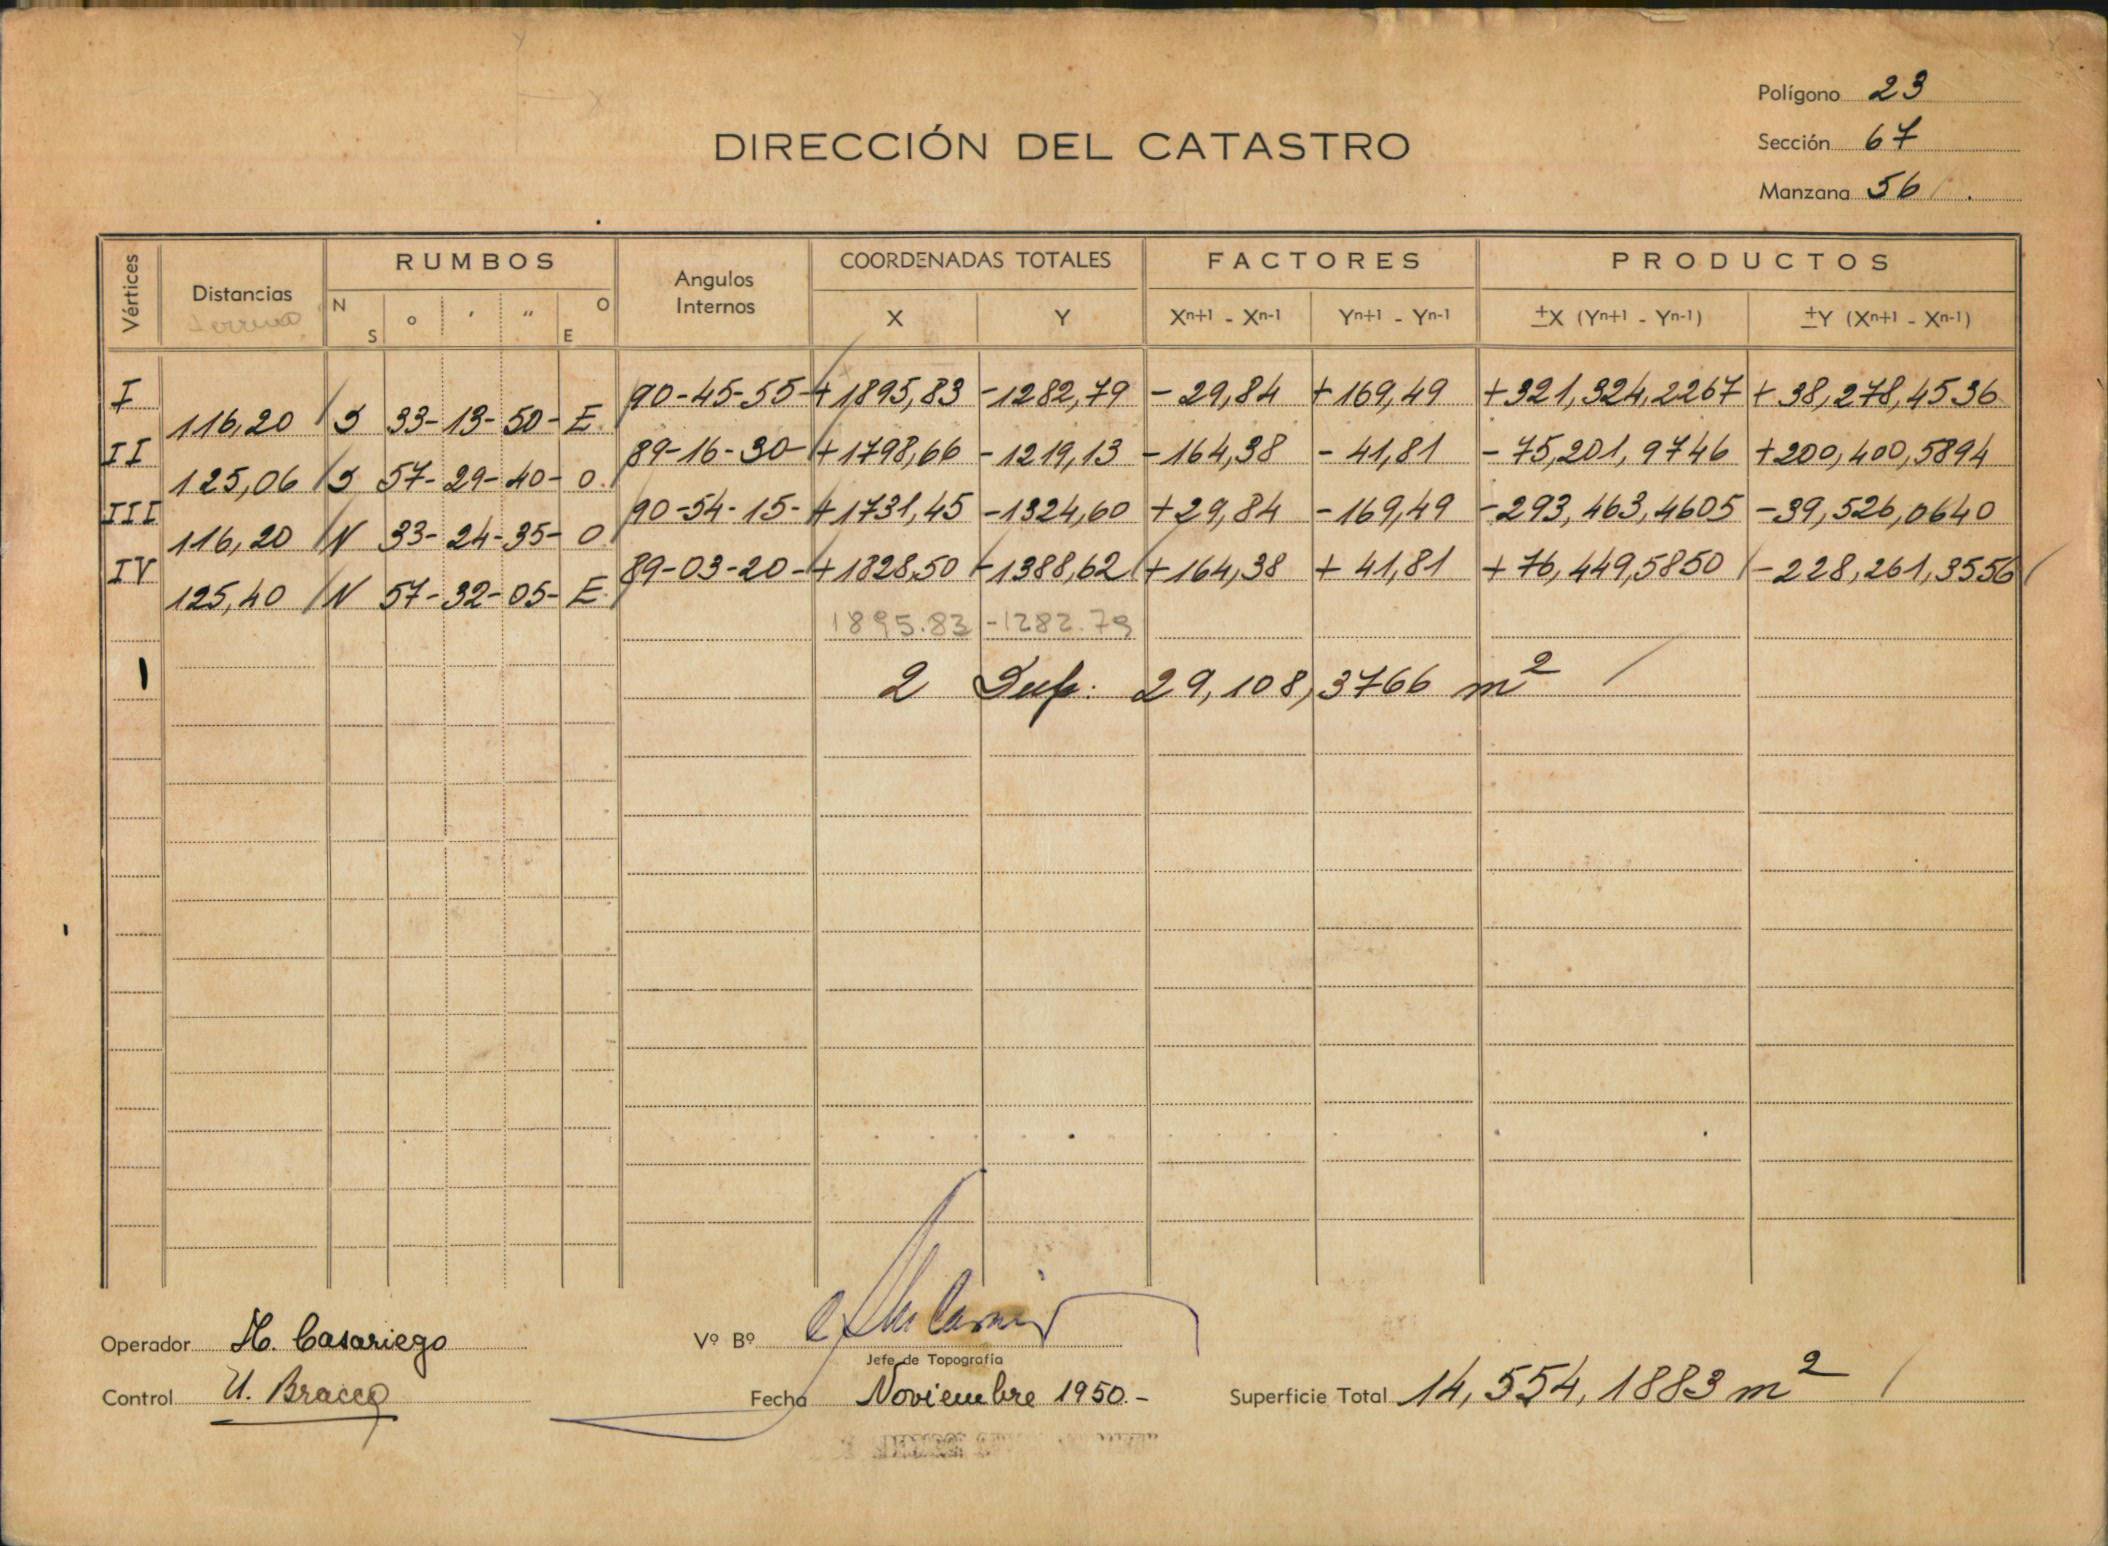 Polígono 23
DIRECCIÓN DEL CATASTRO
Sección 67
Manzana 56
Vértices Distancias RUMBOS Angulos Internos COORDENADAS TOTALES FACTORES PRODUCTOS
terreno N S o ' " O E X Y Xn+1 - Xn-1 Yn+1 - Yn-1 ±X (Yn+1 - Yn-1) ±Y (Xn+1 - Xn-1)
I 90-45-55- +1895,83 -1282,79 -29,84 +169,49 +321,324,2267 +38,278,4536
116,20 S 33-13-50- E.
II 89-16-30- +1798,66 -1219,13 -164,38 -41,81 -75,201,9746 +200,400,5894
125,06 S 57-29-40- O.
III 90-54-15- +1731,45 -1324,60 +29,84 -169,49 -293,463,4605 -39,526,0640
116,20 N 33-24-35- O
IV 89-03-20- +1828,50 -1388,62 +164,38 +41,81 +76,449,5850 -228,261,3556
125,40 N 57-32-05- E.
1895.83 -1282.79
2 Sup: 29,108,3766 m²
Operador H. Casariego Vº Bº
Jefe de Topografía
Control U. Bracco Fecha Noviembre 1950.- Superficie Total 14,554,1883 m²